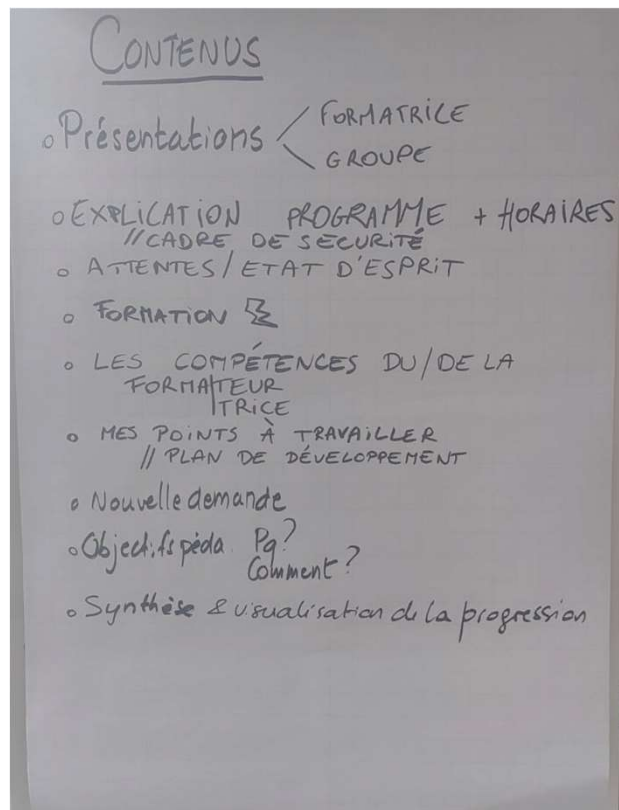 CONTENUS
Présentations < FORMATRICE
GROUPE
EXPLICATION PROGRAMME + HORAIRES
// CADRE DE SECURITÉ
ATTENTES / ETAT D'ESPRIT
FORMATION
LES COMPÉTENCES DU/DE LA
FORMATEUR
TRICE
MES POINTS À TRAVAILLER
// PLAN DE DÉVELOPPEMENT
Nouvelle demande
Objectifs péda. Pq?
Comment?
Synthèse & visualisation de la progression